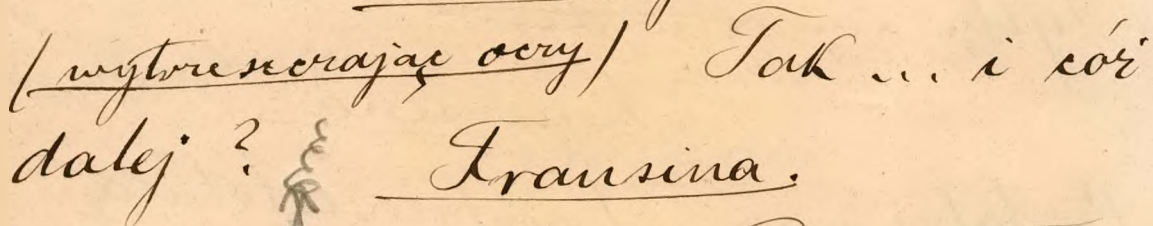 (wytrzeszczając oczy) Tak ... i cóż
dalej?
Fransina.